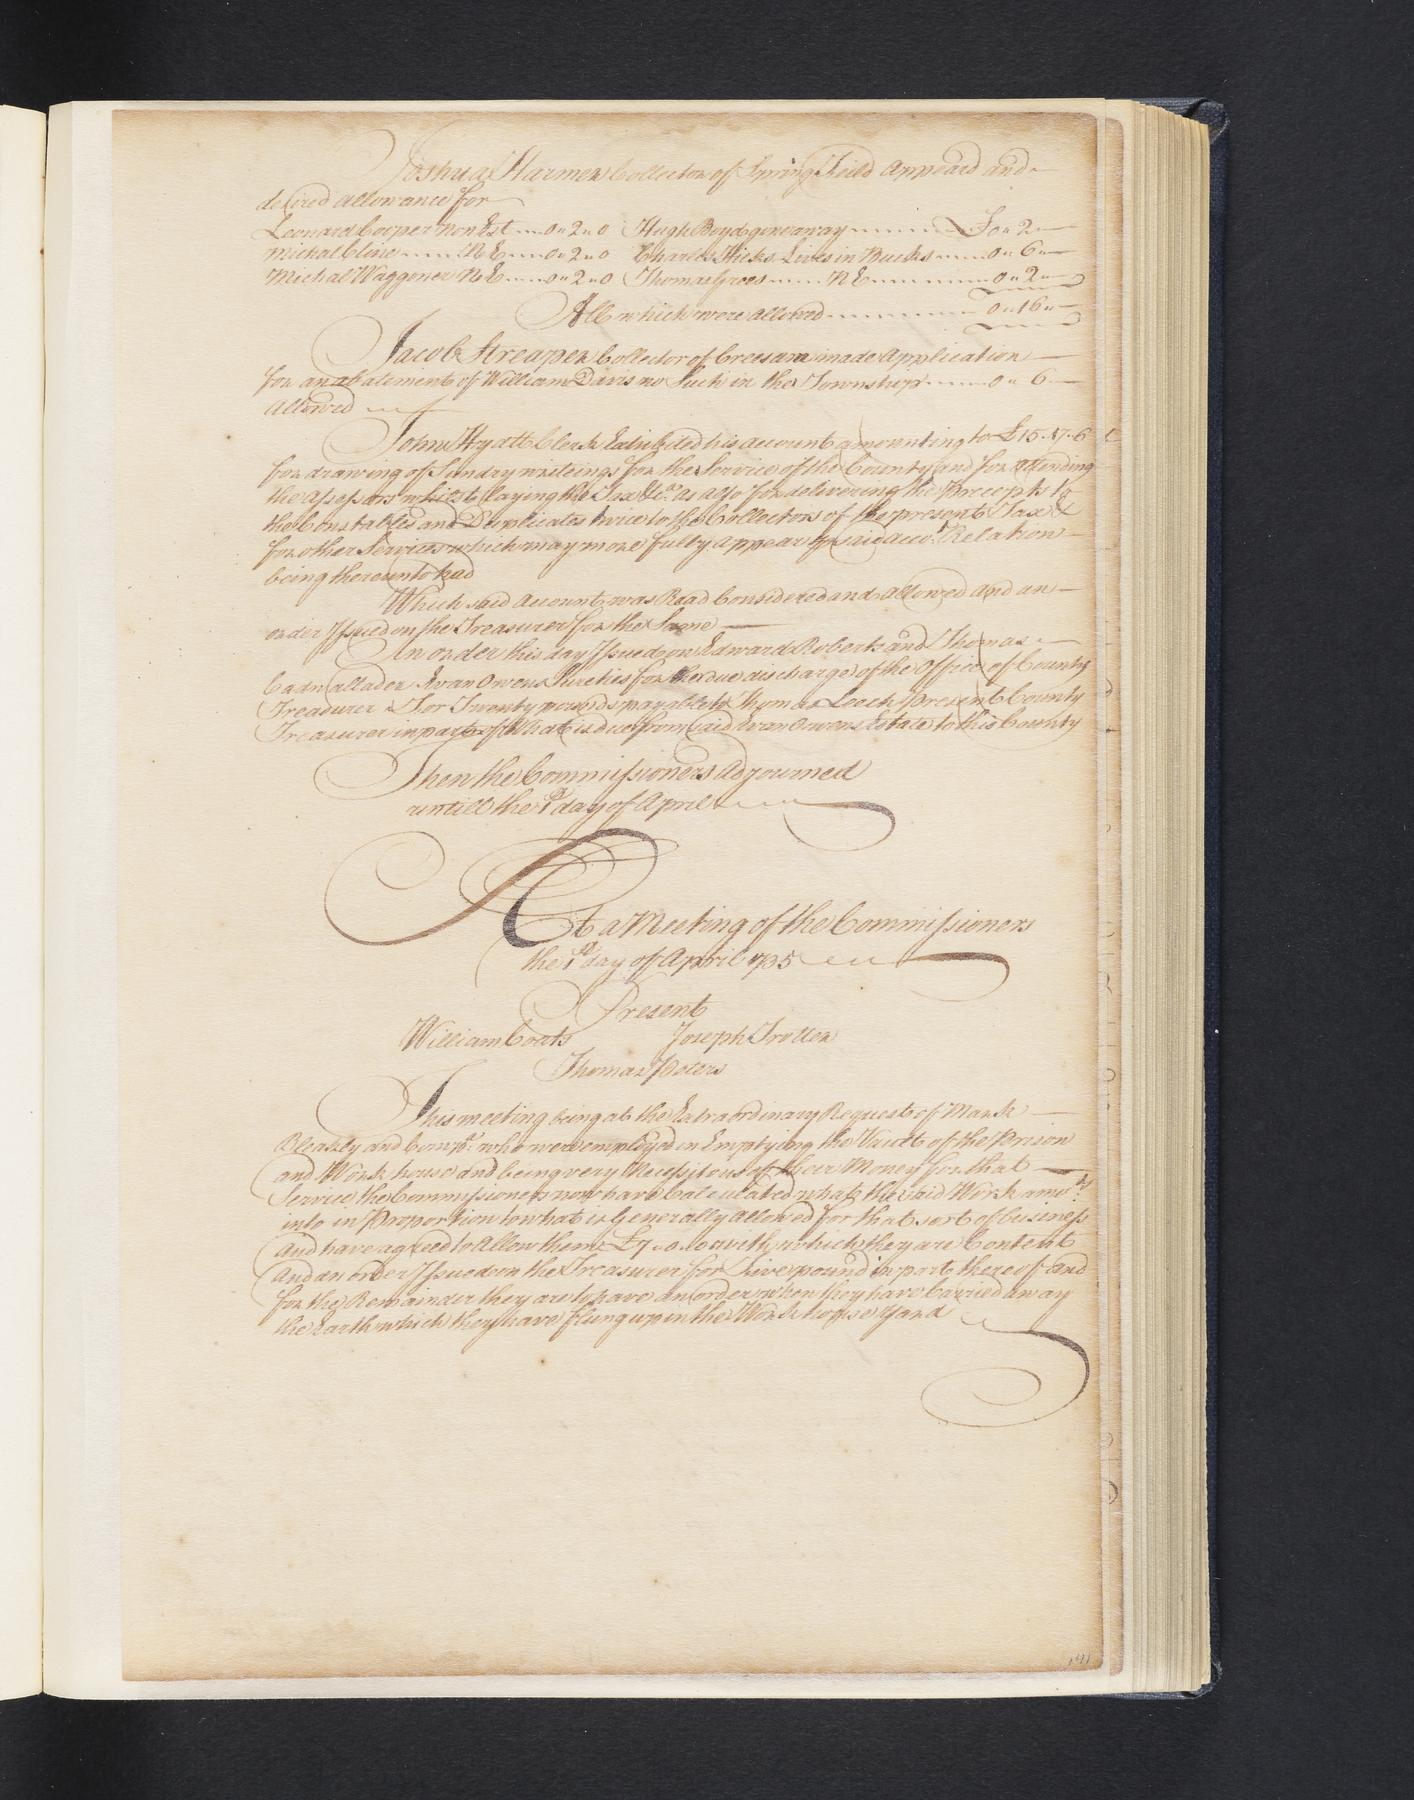 Joshua Harmer Collector of Springfield Appeard and
desired allowance for
Leonard Cooper Non Est 0 " 2 " 0 Hugh Boyd gone away £0 " 2 "
Michal Cline N E 0 " 2 " 0 Charles Hicks Lives in Bucks 0 " 6 "
Michal Waggoner N E 0 " 2 " 0 Thomas Grees N E 0 " 2 "
All which were allowed 0 " 16 "
Jacob Streaper Collector of Creesam made Application
for an abatement of William Davis no Such in the Township 0 " 6
allowed
John Hyatt Clerk Exhibited his account amounting to £15.17.6
for drawing of Sundry writeings for the Service of the County and for attending
the Assessors whilst laying the Tax &c.a as also for delivering the Precepts to
the Constables and Duplicates twice to the Collectors of the present Tax &
for other Services which may more fully appear by said Acco.t Relation
being thereunto had
Which said Account was Read Considered and allowed and an
order Issued on the Treasurer for the Same
An order this day Issued on Edward Roberts and Thomas
Cadwallader Evan Owens Sureties for the due discharge of the Office of County
Treasurer For Twenty pounds payable to Thomas Leech present County
Treasurer in part of What is due from said Evan Owens Estate to this County
Then the Commissioners Adjourned
untill the 1st day of April
At a Meeting of the Commissioners
the 1st day of April 1735
Present
William Coats Joseph Trotter
Thomas Peters
This meeting being at the Extraordinary Request of Mark
Bleakly and Comp.a who were employed in Emptying the Vault of the Prison
and Workhouse and being very Necessitous of their Money for that
Service the Commissioners now have Calculated what the said Work amo.ts
into in Proportion to what is Generally allowed for that sort of business
And have agreed to Allow them £7 " 0 " 0 with which they are Content
And an order Issued on the Treasurer for Five pound in part thereof and
for the Remainder they are to have an order when they have Carried away
the Earth which they have flung up in the Workhouse yard
141